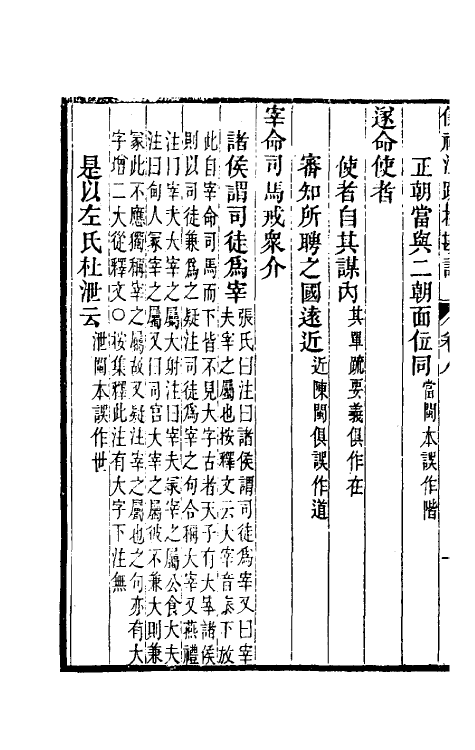 儀禮注疏挍勘記　卷八
正朝當與二朝面位同當閩本誤作階
遂命使者
使者自其謀內其單疏要義俱作在
審知所聘之國遠近近陳閩俱誤作道
宰命司馬戒衆介
諸侯謂司徒爲宰張氏曰注曰諸侯謂司徒爲宰又曰宰
夫宰之屬也按釋文云大宰音泰下放
此自宰命司馬而下皆不見大字古者天子有大宰諸侯
則以司徒兼爲之疑注司徒爲宰之句合稱大宰又燕禮
注曰宰夫大宰之屬大射注曰宰夫冢宰之屬公食大夫
注曰甸人冢宰之屬又曰司宮大宰之屬彼不兼大則兼
冢此不應獨稱宰之屬故又疑注宰之屬也之句亦有大
字增二大從釋文〇按集釋此注有大字下注無
是以左氏杜泄云泄閩本誤作世